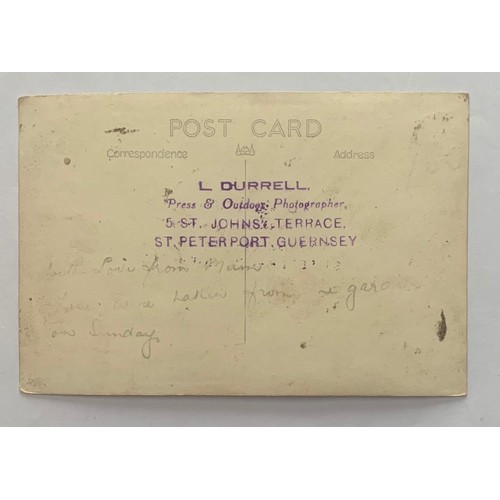 POST CARD
Correspondence
Address
L DURRELL.
Press & Outdoor Photographer,
5 ST. JOHNS TERRACE,
ST. PETER PORT, GUERNSEY
with Love from
taken from garden
on Sunday